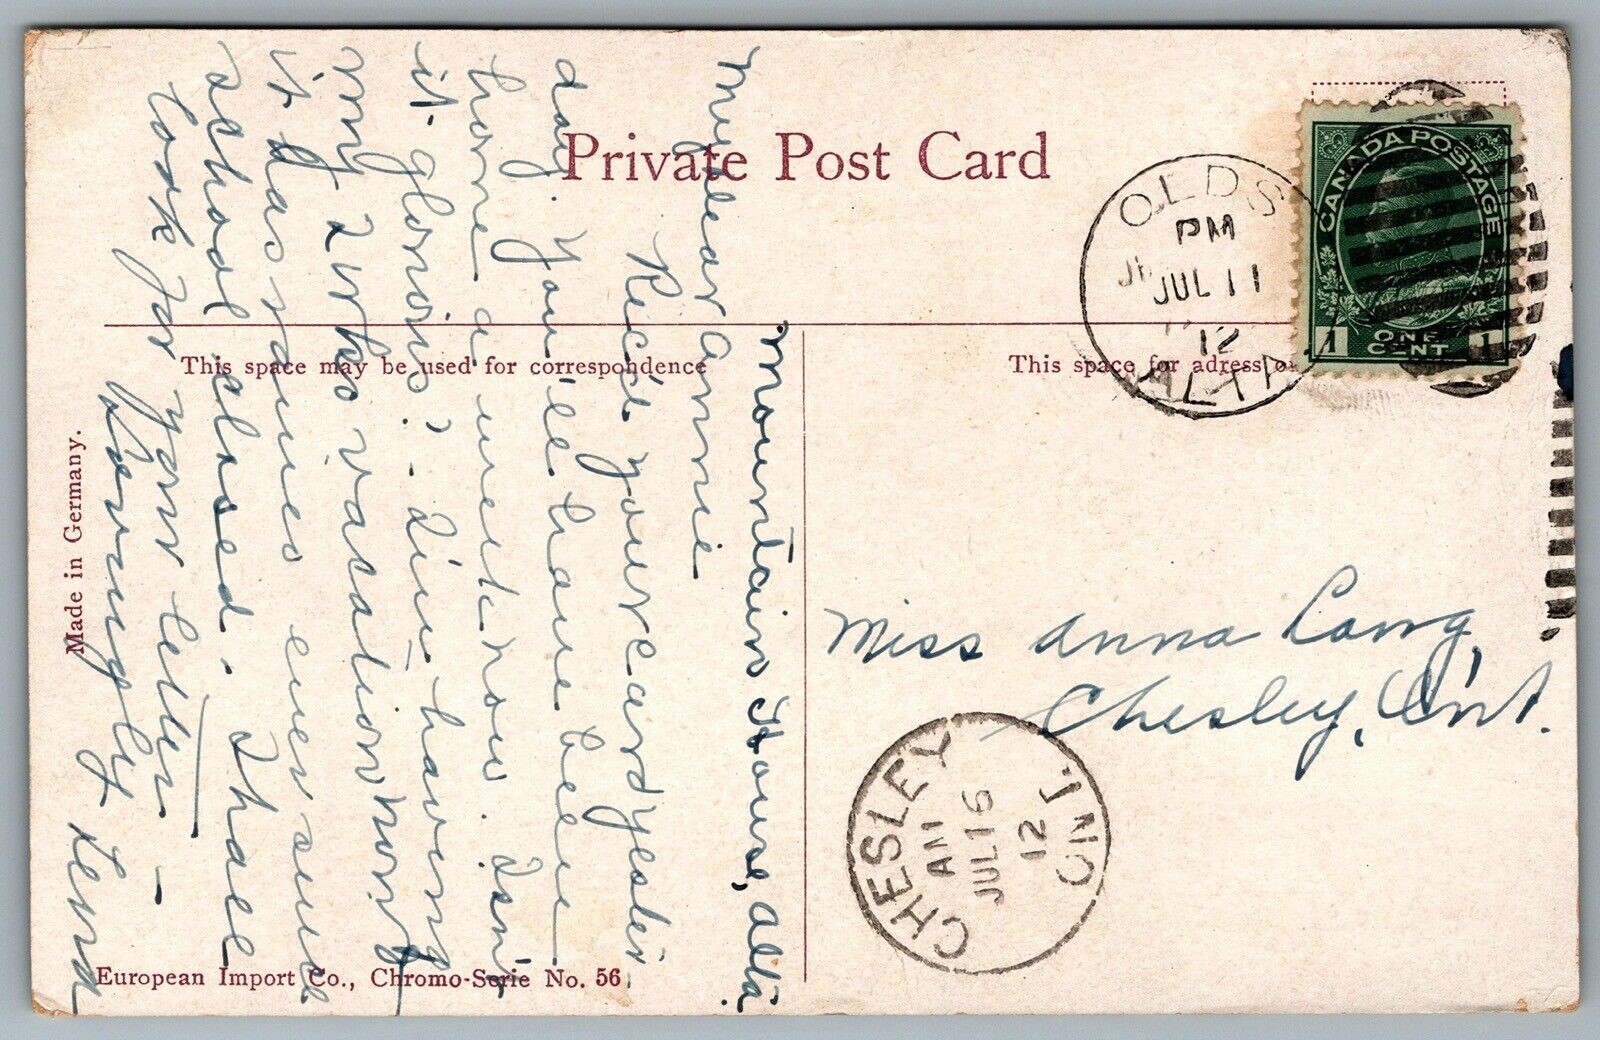 Private Post Card
OLDS
PM
JUL 11
12
ALTA
CANADA POSTAGE
1 ONE CENT 1
This space may be used for correspondence
This space for adress o
Mountain House, Alta.
My dear Annie
Rec'd your card yester
day. You'll have been
home a week now. Isn't
it glorious? I'm having
my 2 wks vacation now
it has rained ever since
school closed. Shall
look for your letter –
Lovingly Lena
Miss Anna Lang,
Chesley, Ont.
CHESLEY
AM
JUL 16
12
ONT.
Made in Germany.
European Import Co., Chromo-Serie No. 56